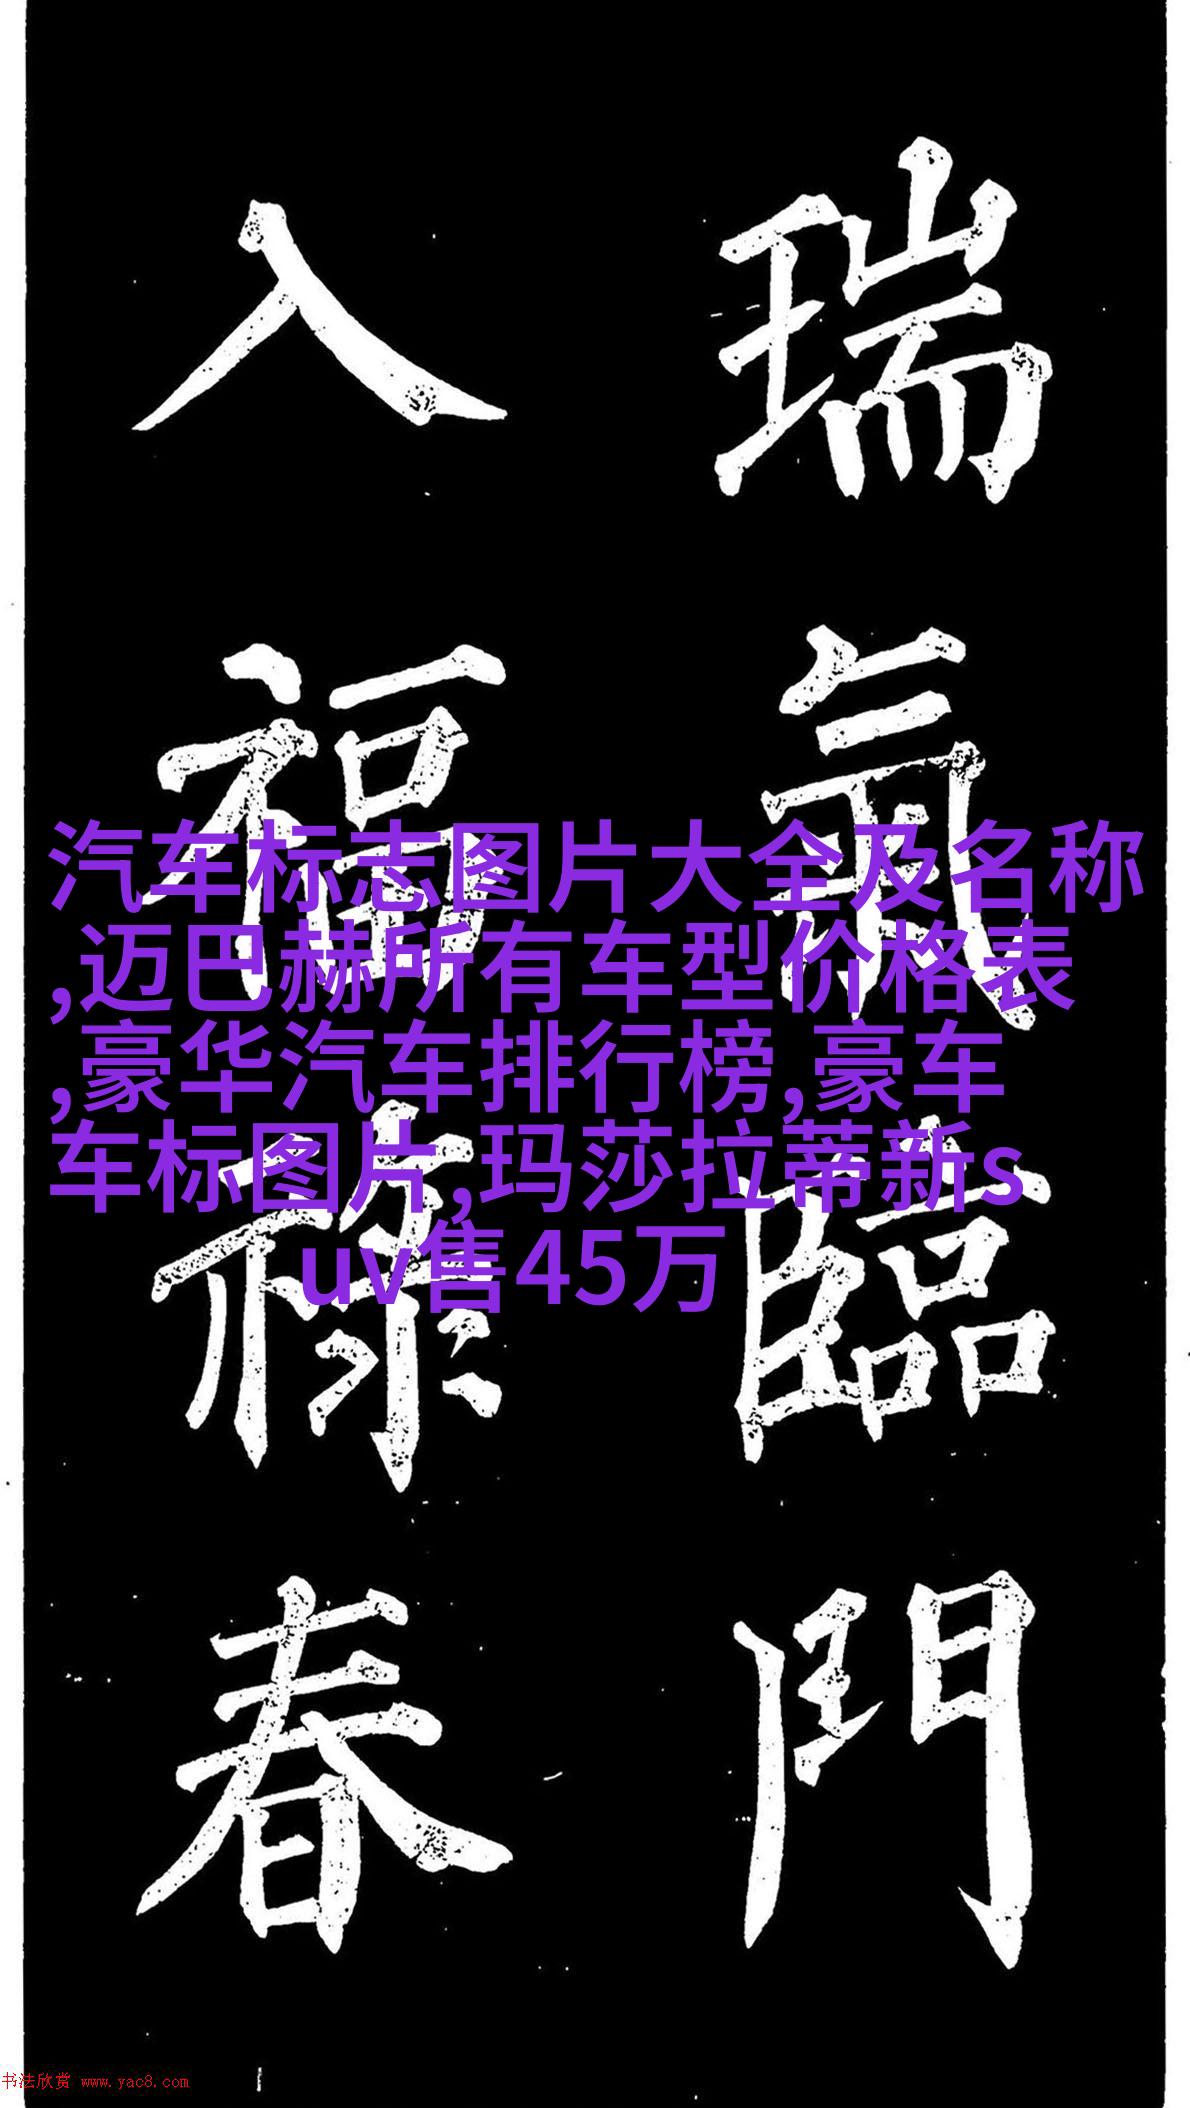 瑞氣臨門
入福禄春
汽车标志图片大全及名称
,迈巴赫所有车型价格表
,豪华汽车排行榜,豪车
车标图片,玛莎拉蒂新s
uv售45万
书法欣赏 www.yac8.com